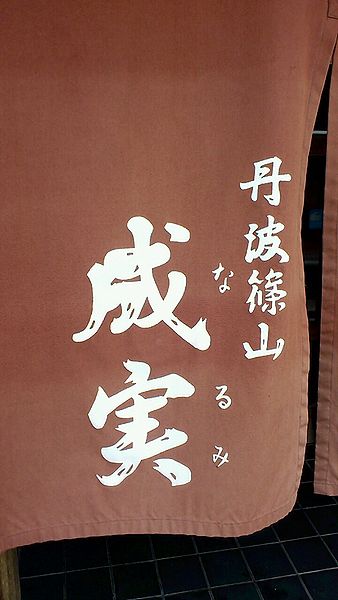 丹波篠山
なるみ
成実